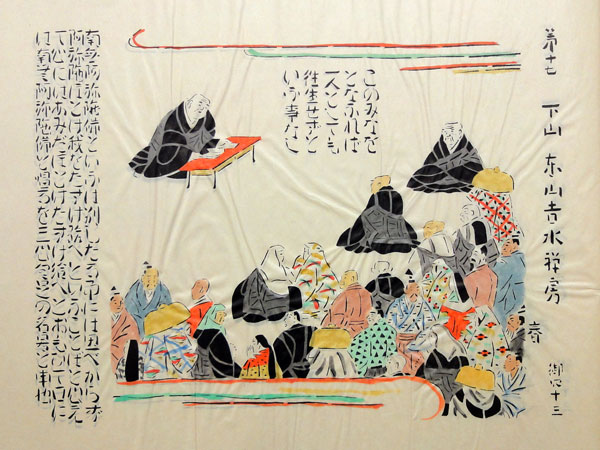 第十七 下山 東山吉水禅房
春 御四十三
このみなを
となふれば
一人としても
往生せずと
いふ事なし
南無阿弥陀佛といふは別したる事には思べからず
阿弥陀ほとけ我をたすけ給へといふことばと心え
て心にはあみだほとけたすけ給へとおもひて口に
は南無阿弥陀佛と唱るを三心具足の名号と申也